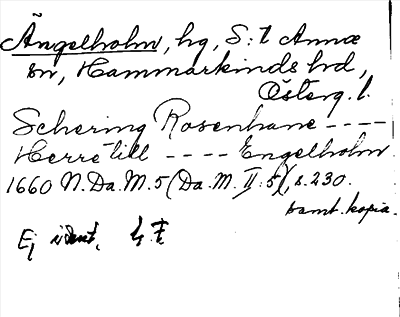 Ängelholm, hg, S:t Annæ
sn, Hammarkinds hd,
Österg. l.
Schering Rosenhane ----
Herre till ---- Engelholm.
1660 N.Da.M.5 (Da.M.II:5), s.230.
samt. kopia.
Ej ident,